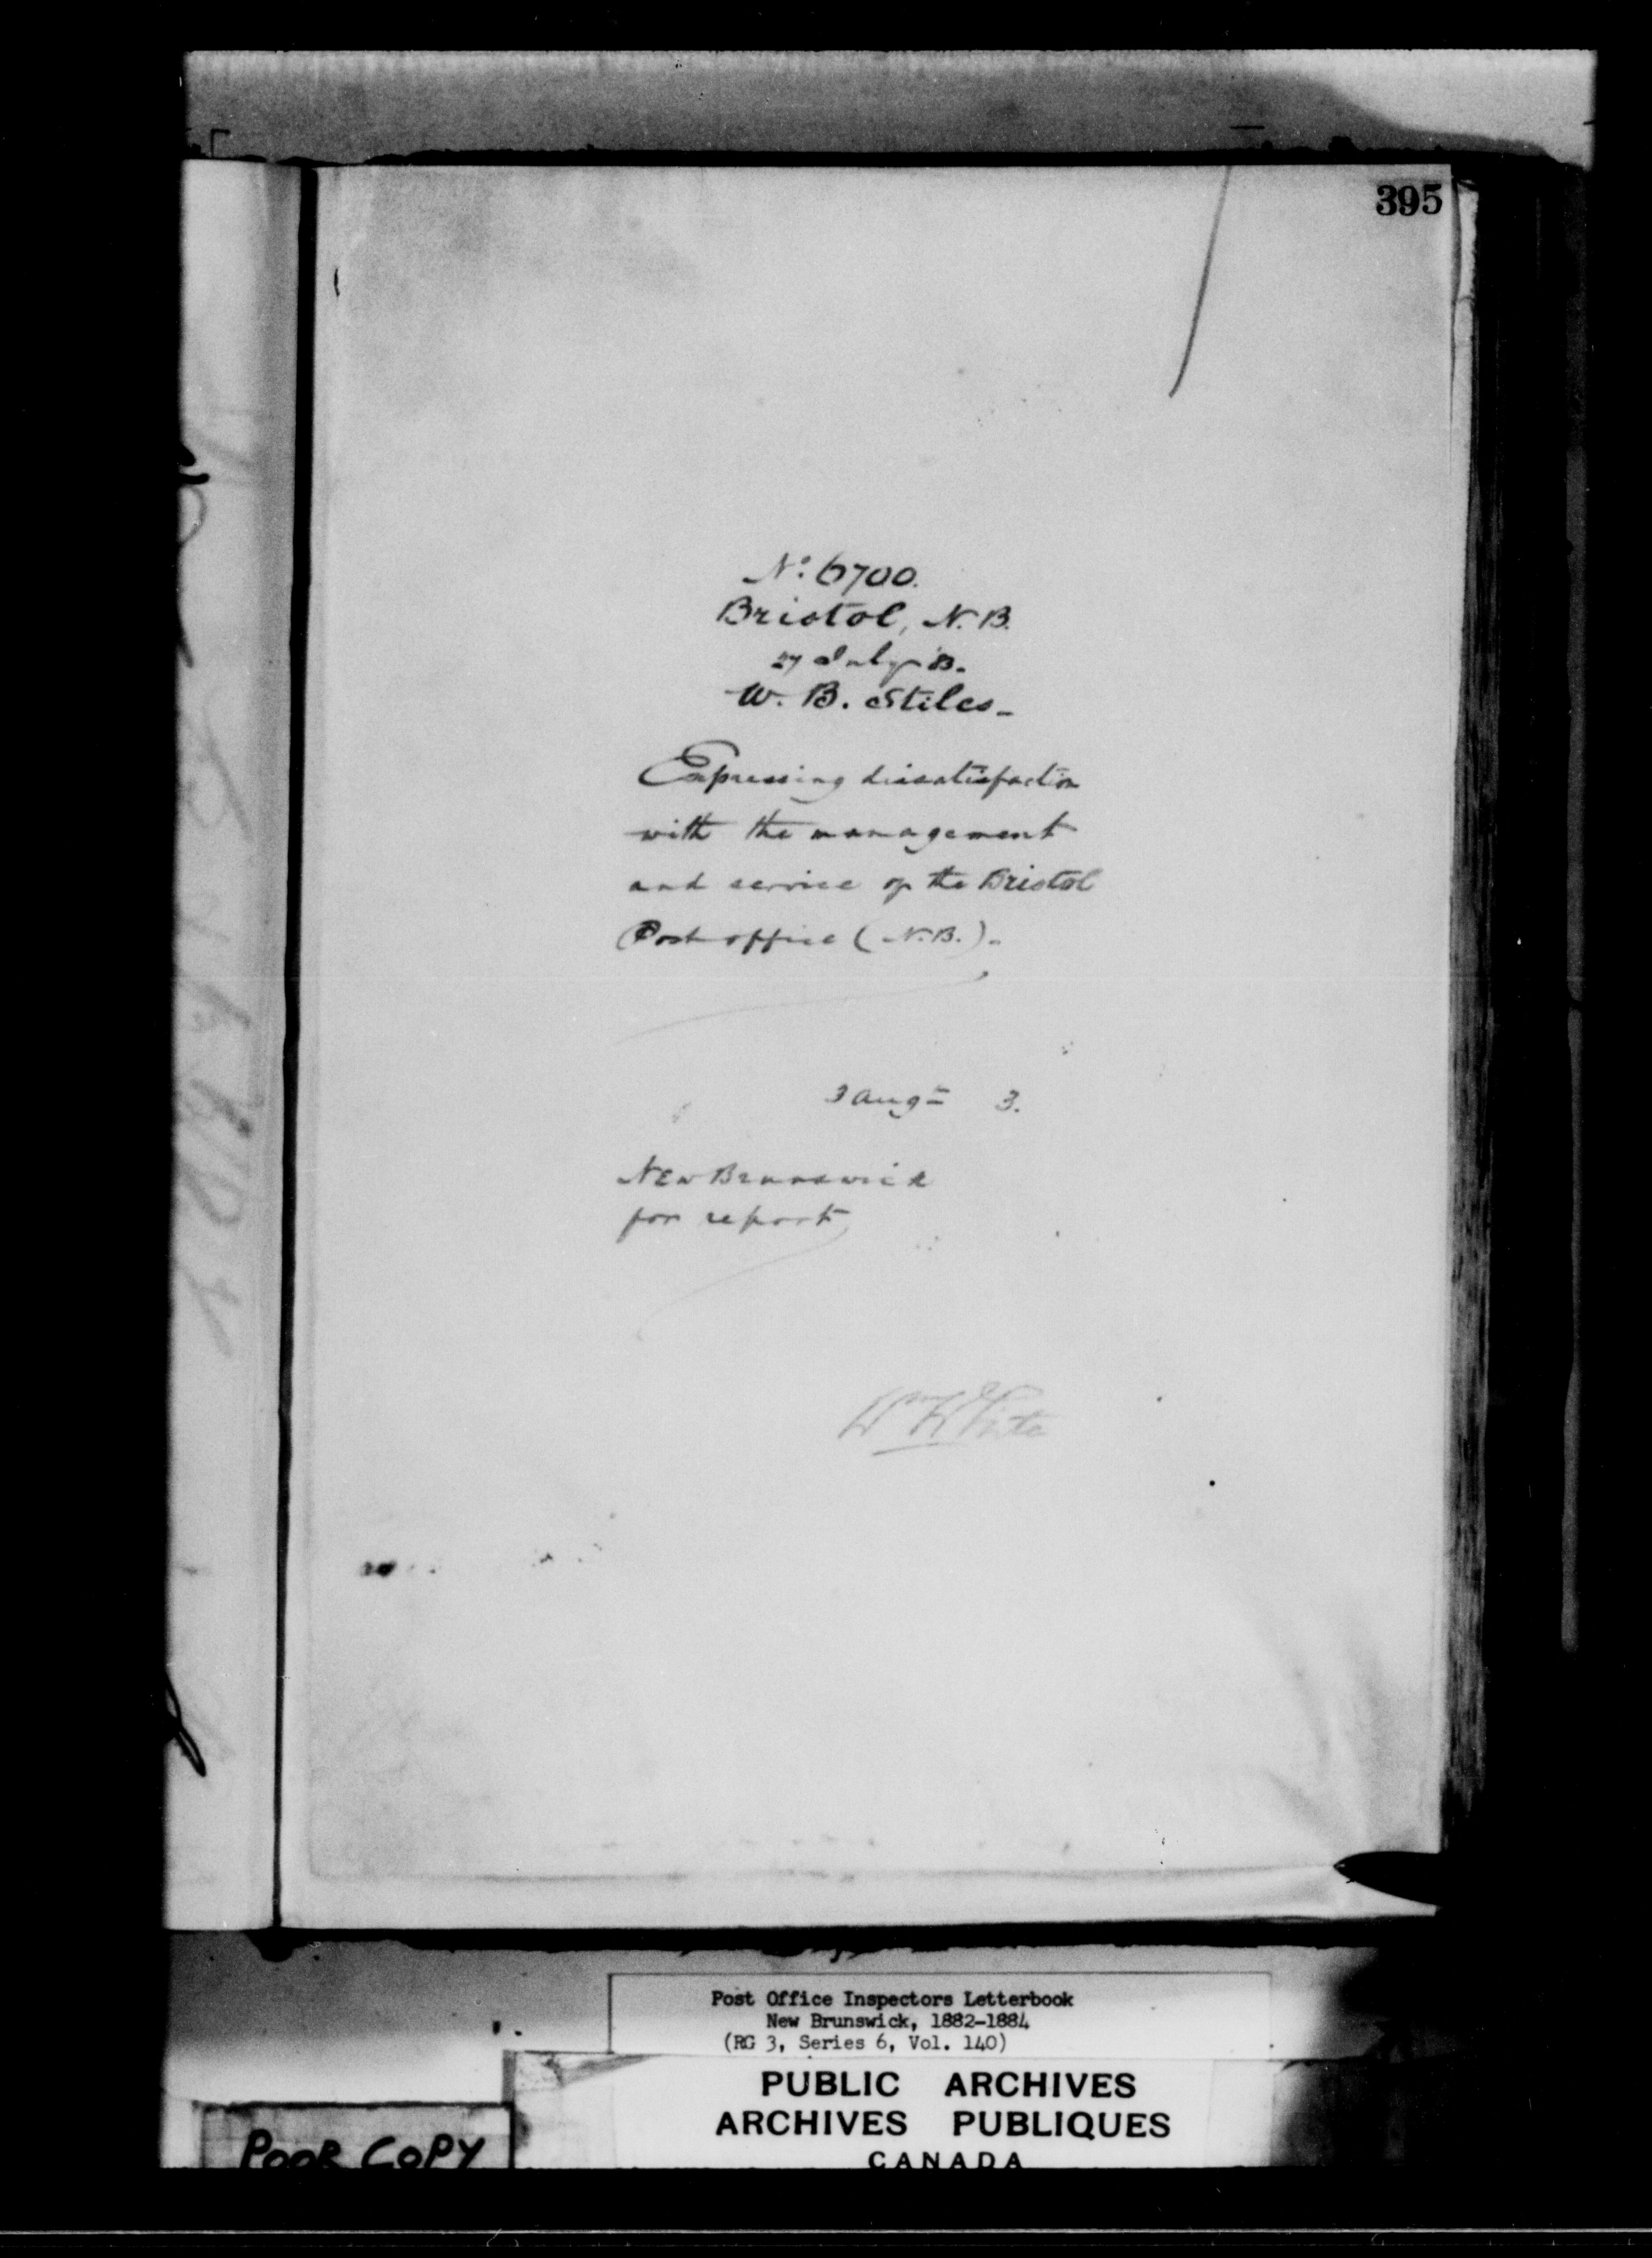 395
No. 6700.
Bristol, N. B.
27 July 83.
W. B. Stiles_
Expressing dissatisfaction
with the management
and service of the Bristol
Post office (N.B.).
3 Augt 3.
New Brunswick
for report
Wm White
Post Office Inspectors Letterbook
New Brunswick, 1882-1884
(RG 3, Series 6, Vol. 140)
PUBLIC ARCHIVES
ARCHIVES PUBLIQUES
CANADA
POOR COPY